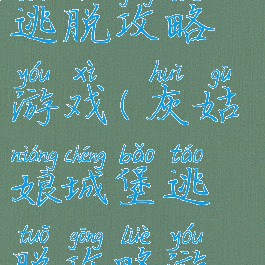 逃脱攻略
yóu xì huī gū
游戏(灰姑
niáng chéng bǎo táo
娘城堡逃
tuō gōng lüè yóu
脱攻略游